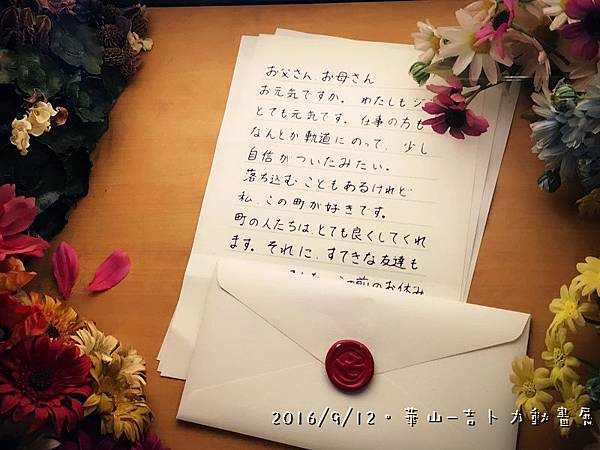 お父さん、お母さん
お元気ですか。わたしもジ
とても元気です。仕事の方も
なんとか軌道にのって、少し
自信がついたみたい。
落ち込むこともあるけれど
私、この町が好きです。
町の人たちは、とても良くしてくれ
ます。それに、すてきな友達も
この前のお休み
2016/9/12。華山-吉卜力動畫展